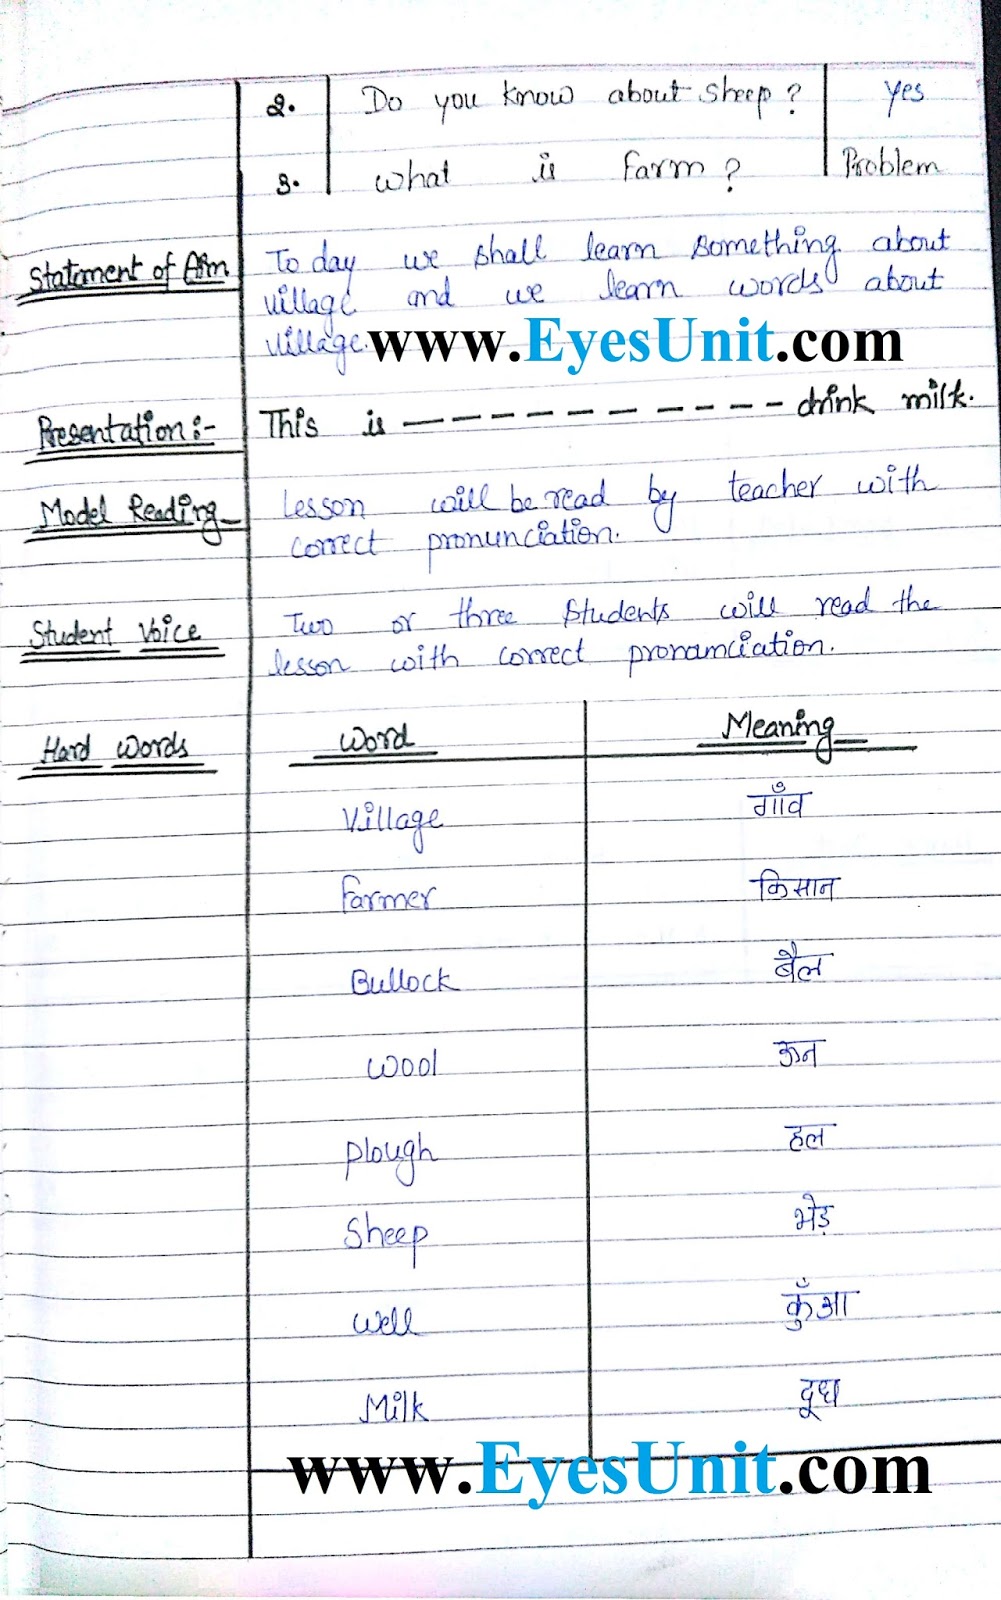 2. Do you know about sheep? Yes
3. What is Farm? Problem
Statement of Aim Today we shall learn something about
village and we learn words about
village. www.EyesUnit.com
Presentation:- This is ----------- drink milk.
Model Reading Lesson will be read by teacher with
correct pronunciation.
Student Voice Two or three students will read the
lesson with correct pronamciation.
Hard Words Word Meaning
Village गाँव
Farmer किसान
Bullock बैल
Wool ऊन
Plough हल
Sheep भेड़
Well कुँआ
Milk दूध
www.EyesUnit.com